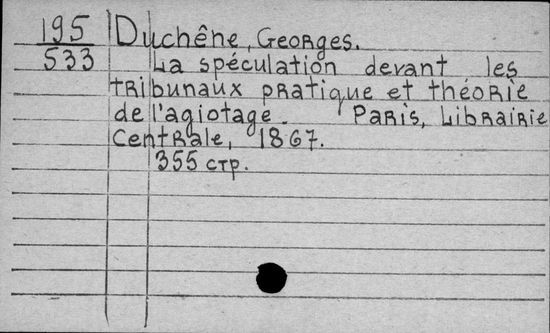 195 Duchêne, Georges.
533 La spéculation devant les
tribunaux pratique et théorie
de l'agiotage. Paris, Librairie
Centrale, 1867.
355 стр.